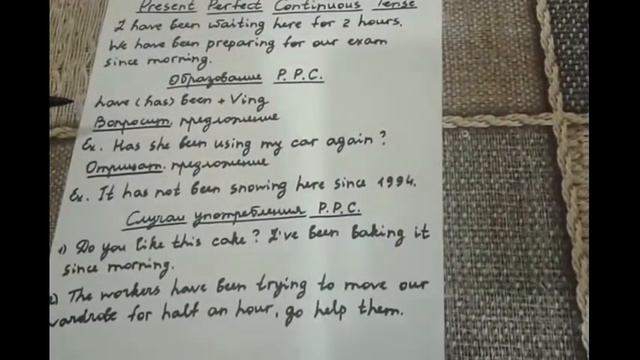 Present Perfect Continuous Tense
I have been waiting here for 2 hours.
We have been preparing for our exam
since morning.
Образование P.P.C.
have (has) been + Ving
Вопросит. предложение
Ex. Has she been using my car again?
Отрицат. предложение
Ex. It has not been snowing here since 1994.
Случаи употребления P.P.C.
1) Do you like this cake? I've been baking it
since morning.
2) The workers have been trying to move our
wardrobe for half an hour, go help them.